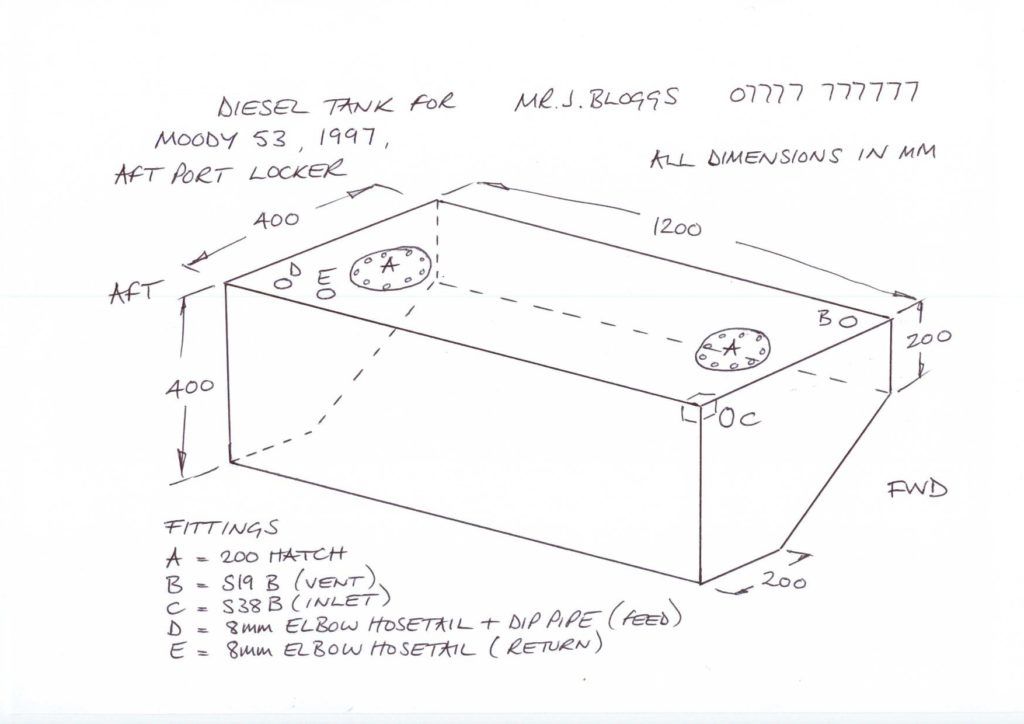 DIESEL TANK FOR MR. J. BLOGGS 07777 777777
MOODY 53, 1997,
AFT PORT LOCKER
ALL DIMENSIONS IN MM
400
1200
D
E
A
AFT
B
200
A
400
C
FWD
200
FITTINGS
A = 200 HATCH
B = S19 B (VENT)
C = S38 B (INLET)
D = 8mm ELBOW HOSETAIL + DIP PIPE (FEED)
E = 8mm ELBOW HOSETAIL (RETURN)